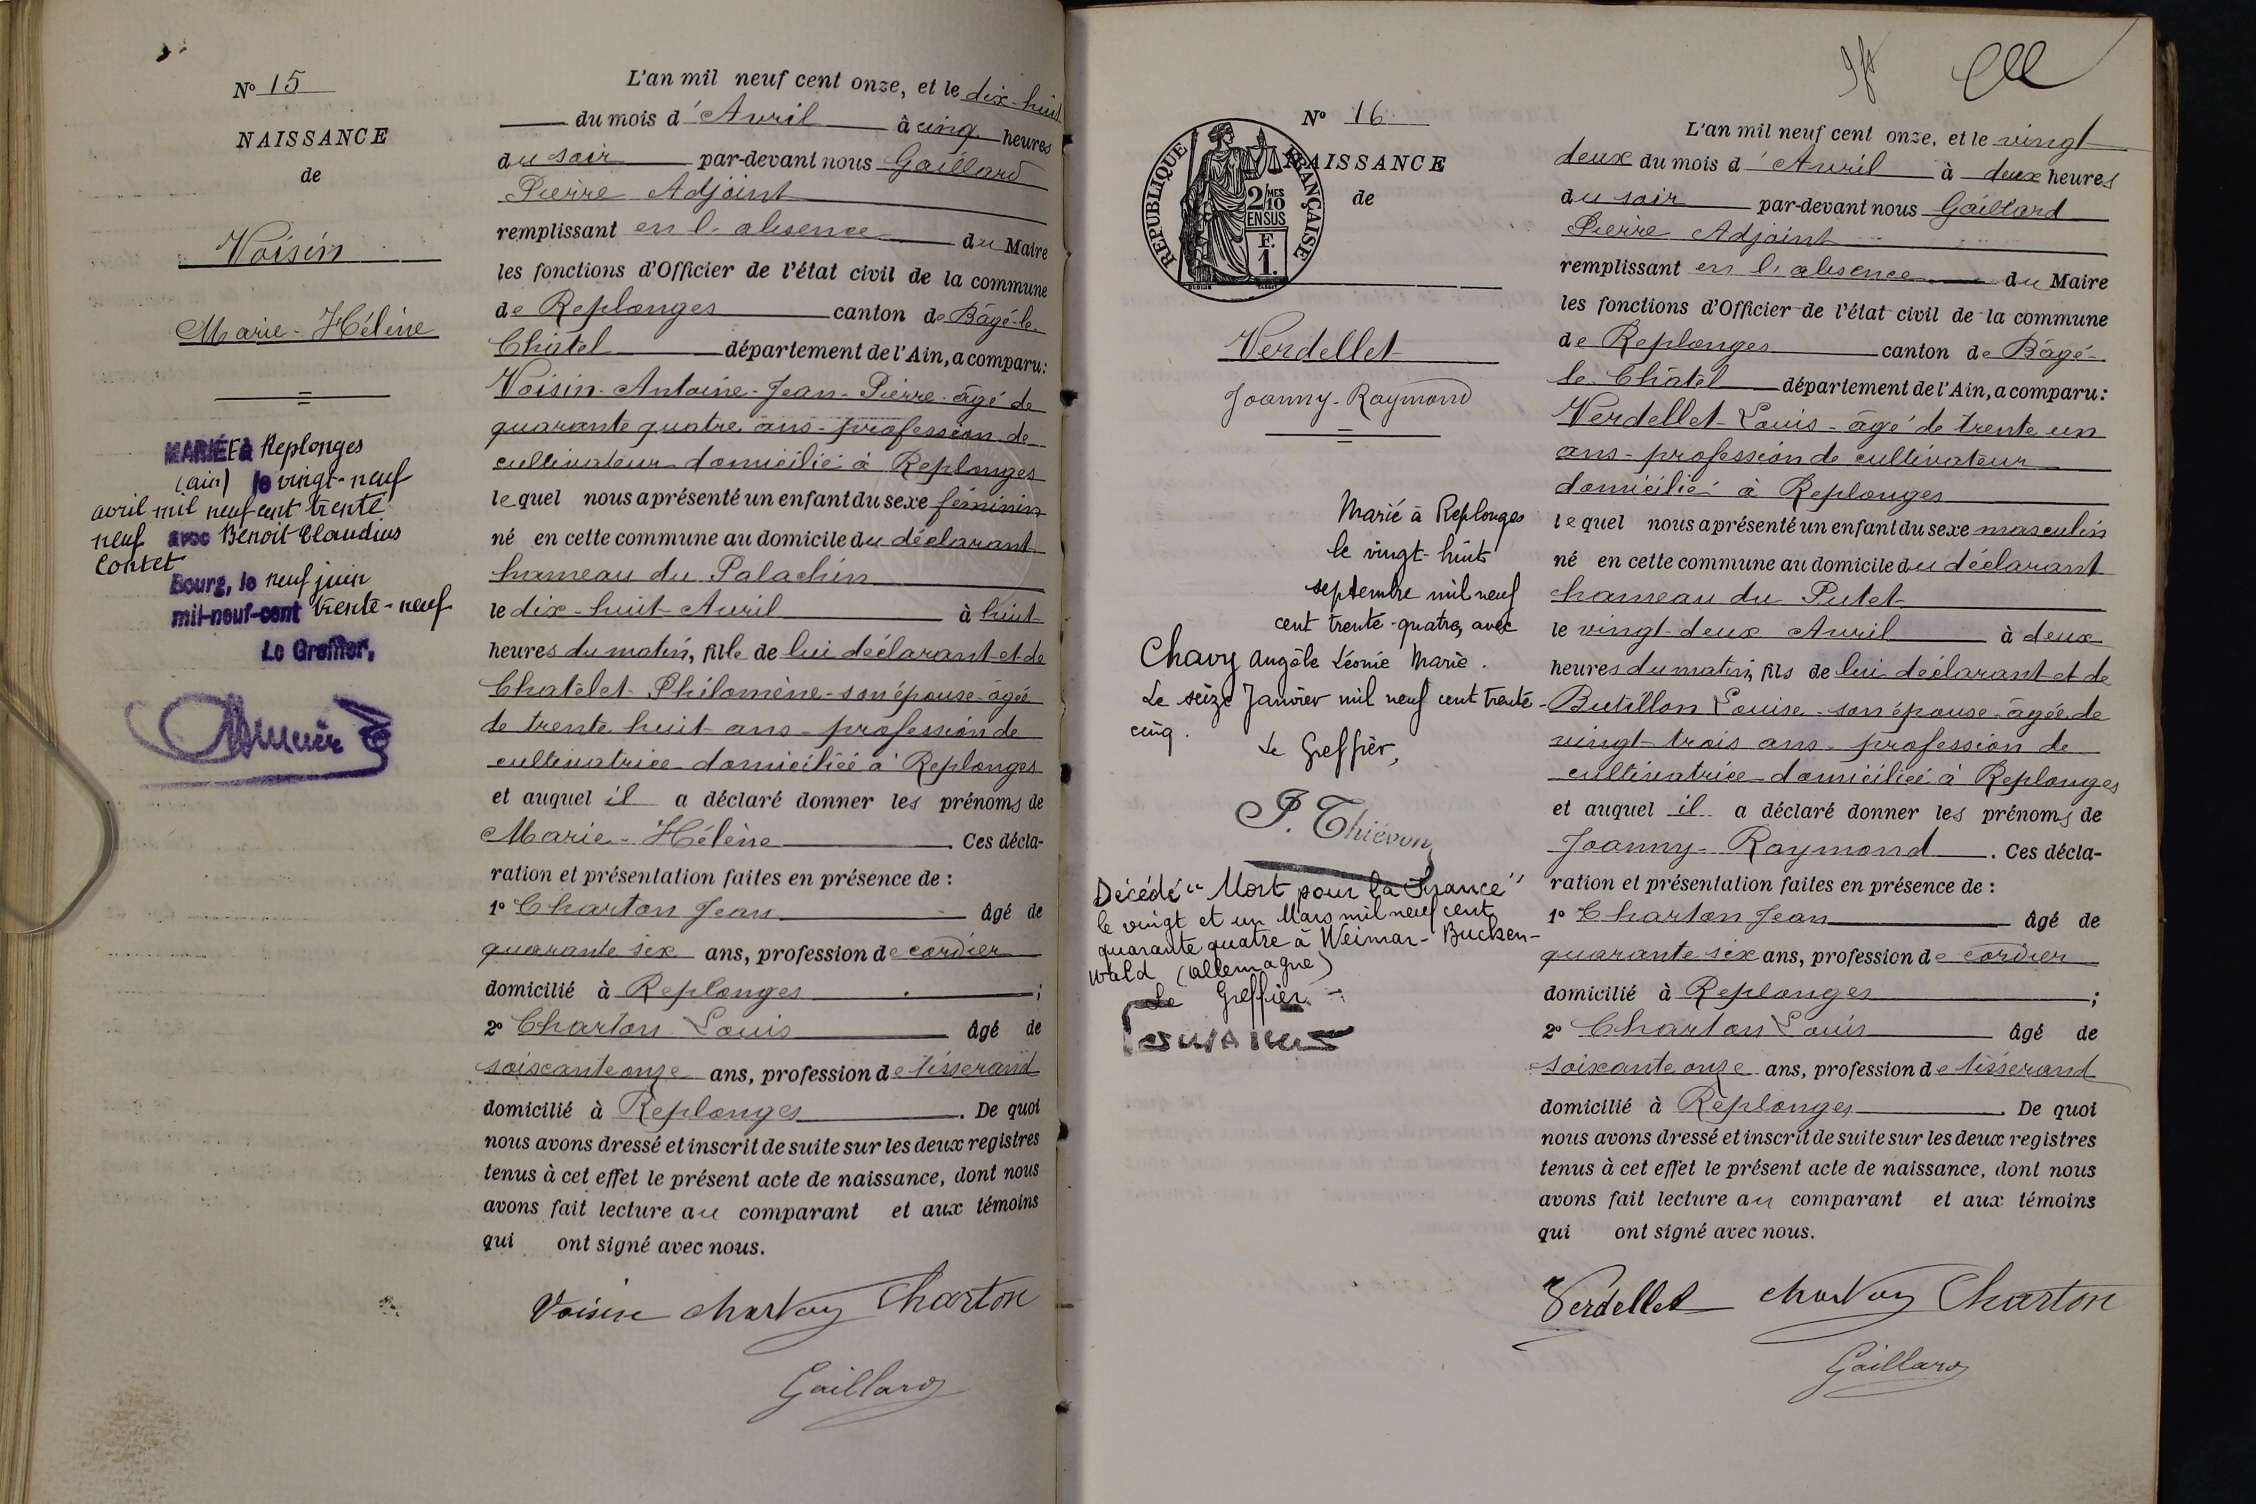 N° 15
NAISSANCE
de
Voisin
Marie-Hélène
MARIÉE à Replonges
(ain) le vingt-neuf
avril mil neuf cent trente
neuf avec Benoit Claudius
Contet
Bourg, le neuf juin
mil-neuf-cent trente-neuf
Le Greffier,
L'an mil neuf cent onze, et le dix-huit
du mois d'Avril à cinq heures
du soir par-devant nous Gaillard
Pierre Adjoint
remplissant en l'absence du Maire
les fonctions d'Officier de l'état civil de la commune
de Replonges canton de Bâgé-le-
Châtel département de l'Ain, a comparu:
Voisin-Antoine-Jean-Pierre-âgé de
quarante quatre ans-profession de
cultivateur domicilié à Replonges
lequel nous a présenté un enfant du sexe féminin
né en cette commune au domicile du déclarant
hameau du Palachin
le dix-huit Avril à huit
heures du matin, fille de lui déclarant et de
Chatelet Philomène-son épouse-âgée
de trente huit ans-profession de
cultivatrice domiciliée à Replonges
et auquel il a déclaré donner les prénoms de
Marie-Hélène. Ces décla-
ration et présentation faites en présence de :
1° Charton Jean âgé de
quarante six ans, profession de cordier
domicilié à Replonges ;
2° Charton Louis âgé de
soixante onze ans, profession de tisserand
domicilié à Replonges. De quoi
nous avons dressé et inscrit de suite sur les deux registres
tenus à cet effet le présent acte de naissance, dont nous
avons fait lecture au comparant et aux témoins
qui ont signé avec nous.
Voisin Charton Charton
Gaillard
N° 16
RÉPUBLIQUE FRANÇAISE
2/10 MES
EN SUS
F.
1.
NAISSANCE
de
Verdellet
Joanny-Raymond
Marié à Replonges
le vingt-huit
septembre mil neuf
cent trente-quatre, avec
Chavy Angèle Léonie Marie.
Le seize Janvier mil neuf cent trente-
cinq.
Le Greffier,
P. Thiévon
Décédé "Mort pour la France"
le vingt et un Mars mil neuf cent
quarante quatre à Weimar-Bucken-
wald (allemagne)
Le Greffier
L'an mil neuf cent onze, et le vingt
deux du mois d'Avril à deux heures
du soir par-devant nous Gaillard
Pierre Adjoint
remplissant en l'absence du Maire
les fonctions d'Officier de l'état civil de la commune
de Replonges canton de Bâgé-
le-Châtel département de l'Ain, a comparu:
Verdellet-Louis-âgé de trente un
ans-profession de cultivateur
domicilié à Replonges
lequel nous a présenté un enfant du sexe masculin
né en cette commune au domicile du déclarant
hameau du Putet
le vingt-deux Avril à deux
heures du matin, fils de lui déclarant et de
Butillon Louise-son épouse-âgée de
vingt-trois ans-profession de
cultivatrice domiciliée à Replonges
et auquel il a déclaré donner les prénoms de
Joanny-Raymond. Ces décla-
ration et présentation faites en présence de :
1° Charton Jean âgé de
quarante six ans, profession de cordier
domicilié à Replonges ;
2° Charton Louis âgé de
soixante onze ans, profession de tisserand
domicilié à Replonges. De quoi
nous avons dressé et inscrit de suite sur les deux registres
tenus à cet effet le présent acte de naissance, dont nous
avons fait lecture au comparant et aux témoins
qui ont signé avec nous.
Verdellet Charton Charton
Gaillard